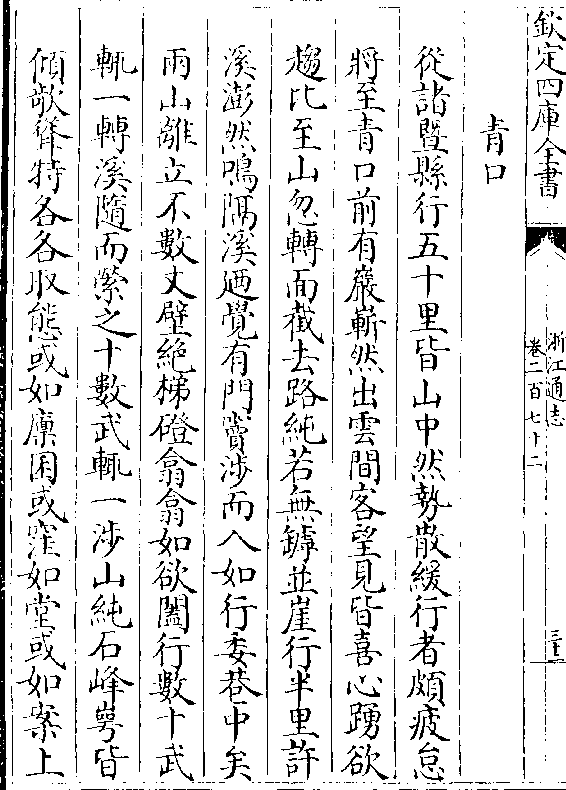 欽定四庫全書
浙江通志
卷二百七十二
三十一
青口
從諸暨縣行五十里皆山中然勢散緩行者頗疲怠
將至青口前有巖嶄然出雲間客望見皆喜心踴欲
趨比至山忽轉面截去路純若無罅並崖行半里許
溪澎然鳴隔溪廼覺有門竇涉而入如行委巷中矣
兩山離立不數丈壁絶梯磴翕翕如欲闔行數十武
輒一轉溪隨而縈之十數武輒一涉山純石峰崿皆
傾欹聳特各各取態或如廩囷或窪如堂或如案上